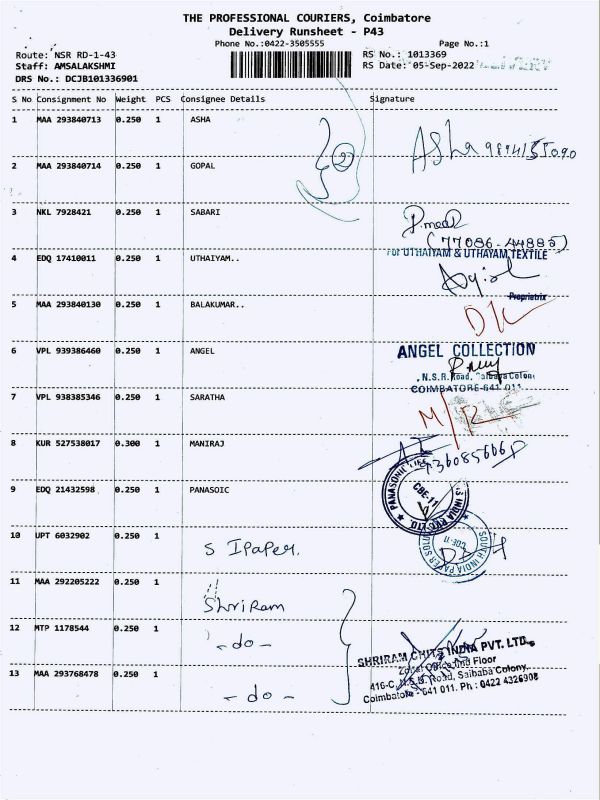 THE PROFESSIONAL COURIERS, Coimbatore
Delivery Runsheet - P43
Phone No.:0422-3505555 Page No.:1
Route: NSR RD-1-43 RS No.: 1013369
Staff: AMSALAKSHMI RS Date: 05-Sep-2022
DRS No.: DCJB101336901
S No Consignment No Weight PCS Consignee Details Signature
1 MAA 293840713 0.250 1 ASHA Asha
2 MAA 293840714 0.250 1 GOPAL
2
3 NKL 7928421 0.250 1 SABARI
(77086-44885)
4 EDQ 17410011 0.250 1 UTHAIYAM..
For UTHAIYAM & UTHAYAM TEXTILE
Proprietrix
5 MAA 293840130 0.250 1 BALAKUMAR..
6 VPL 939386460 0.250 1 ANGEL
ANGEL COLLECTION
N.S.R. Road, Saibaba Colony
COIMBATORE-641 011.
7 VPL 938385346 0.250 1 SARATHA
8 KUR 527538017 0.300 1 MANIRAJ
9 EDQ 21432598 0.250 1 PANASOIC
CBE-11
10 UPT 6032902 0.250 1 S IPaper.
SOUTH INDIA PAPER
11 MAA 292205222 0.250 1 Shriram
12 MTP 1178544 0.250 1 -do-
13 MAA 293768478 0.250 1 -do-
SHRIRAM CHITS INDIA PVT. LTD.,
416-C, N.S.R. Road, Saibaba Colony,
Coimbatore - 641 011. Ph : 0422 4326908